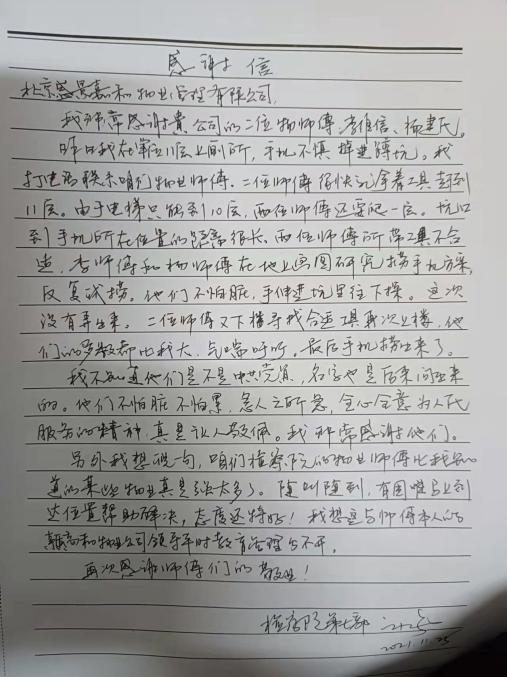 感谢信
北京盛景嘉和物业管理有限公司,
我非常感谢貴公司的二位物师傅李维信、杨建民。
昨日我在单位11层上厕所,手机不慎掉进蹲坑。我
打电话联系咱们物业师傅.二位师傅很快就拿着工具赶到
11层。由于电梯只能到10层,两位师傅还要爬一层。坑口
到手机所在位置的距离很长,两位师傅所带工具不合
适,李师傅和杨师傅在地上画图研究捞手机方案,
反复试捞。他们不怕脏,手伸进坑里往下探。这次
没有弄出来。二位师傅又下楼寻找合适工具再次上楼,他
们的岁数都比我大,气喘吁吁。最后手机捞出来了。
我不知道他们是不是中共党员,名字也是后来问出来
的。他们不怕脏不怕累,急人之所急,全心全意为人民
服务的精神,真是让人敬佩。我非常感谢他们。
另外我想说一句,咱们检察院的物业师傅比我知
道的某些物业真是强太多了。随叫随到,有困难马上到
达位置帮助解决,态度还特好!我想这与师傅本人的
和物业公司领导平时教育管理分不开。
再次感谢师傅们的敬业!
检察院第七部
2021.11.25